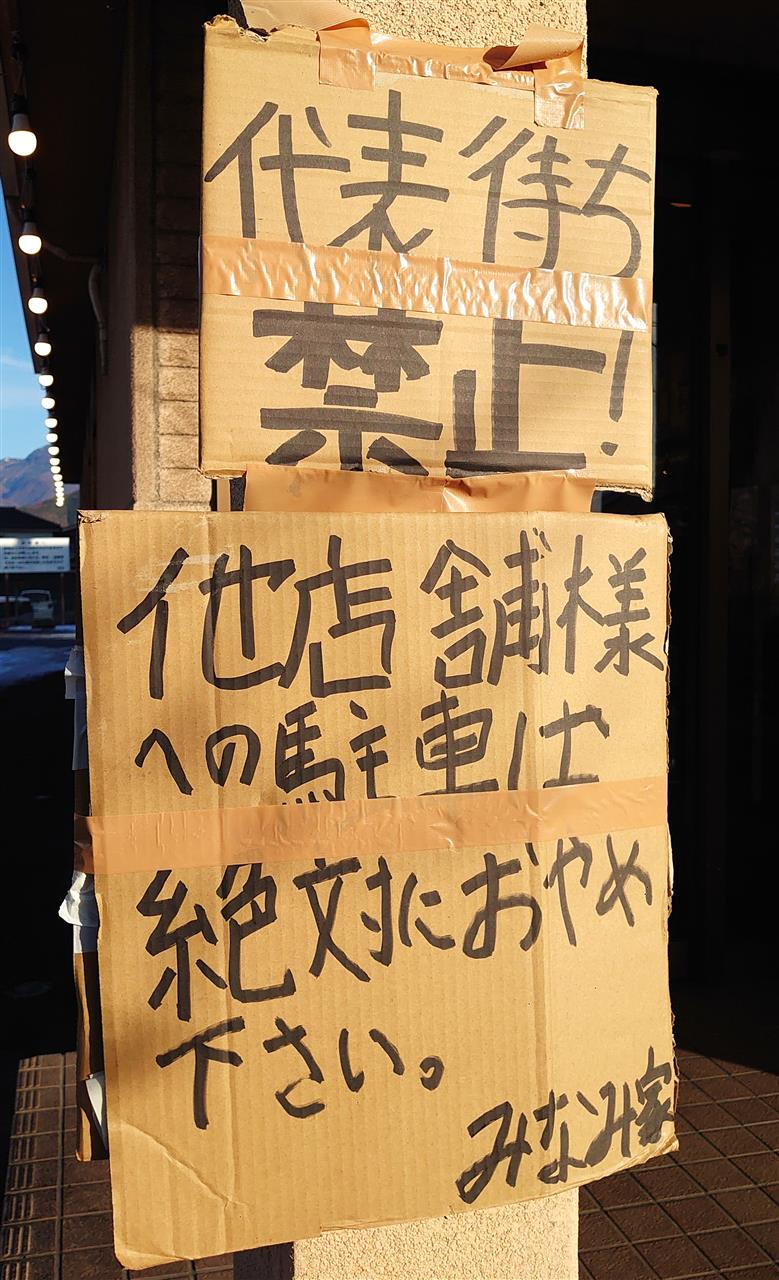 代表待ち
禁止!
他店舗様
への駐車は
絶対におやめ
下さい。
みなみ家